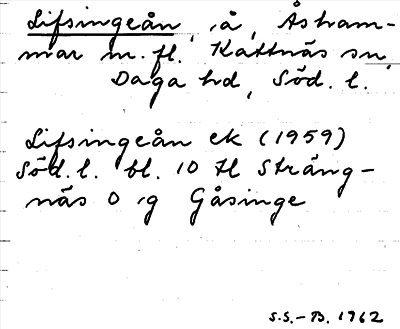 Lifsingeån, å, Åsham-
mar m. fl. Kattnäs sn,
Daga hd, Söd. l.
Lifsingeån ek (1959)
Söd. l. bl. 10 H Sträng-
näs O ; g Gåsinge
S.S.-B. 1962